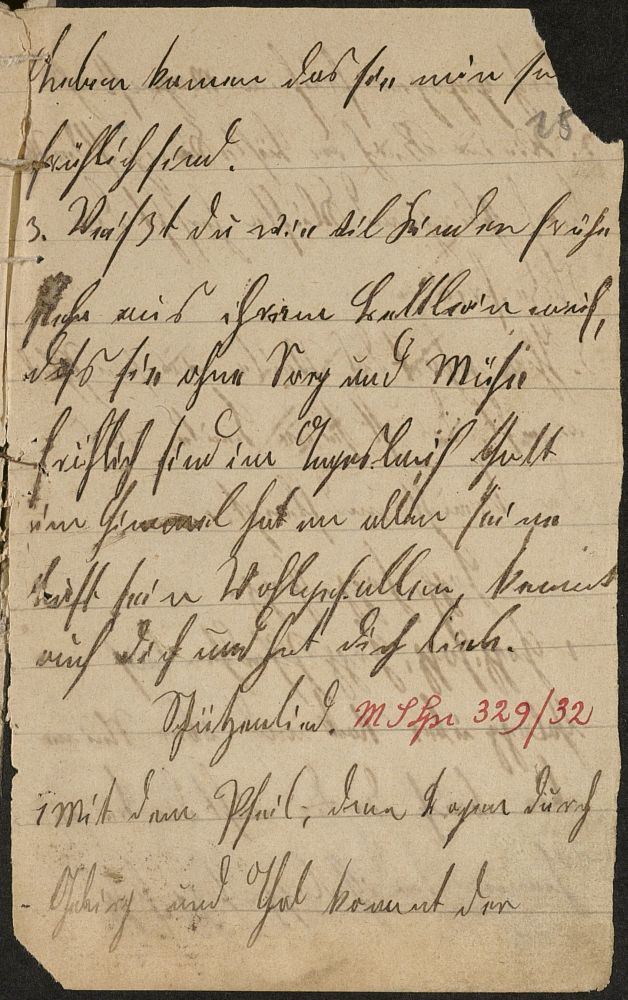 Leben kamen das sie nun so
25
fröhlich sind.
3. Weißt du wie viel Kinder frühe
stehn aus ihrem Bettlein auf,
daß sie ohne Sorg und Mühe
fröhlich sind im Tageslauf Gott
im Himmel hat an allen seine
Lust sein Wohlgefallen, kennt
auch dich und hat dich lieb.
Schützenlied. 329/32
1 Mit dem Pfeil, dem Bogen durch
Gebirg und Thal kommt der